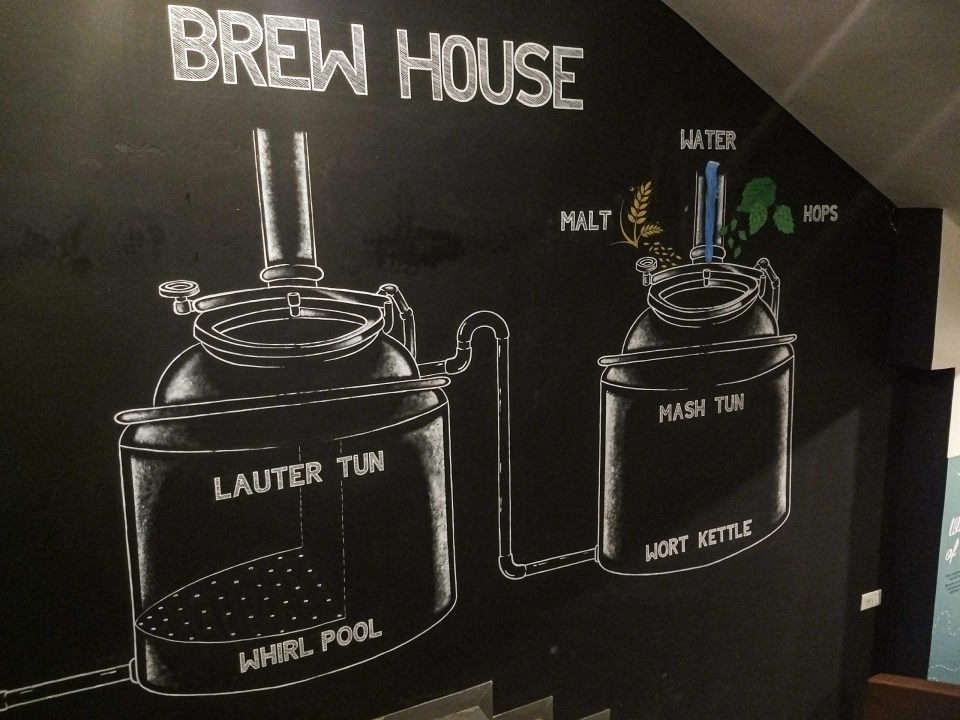 BREW HOUSE
WATER
MALT
HOPS
MASH TUN
WORT KETTLE
LAUTER TUN
WHIRL POOL
of